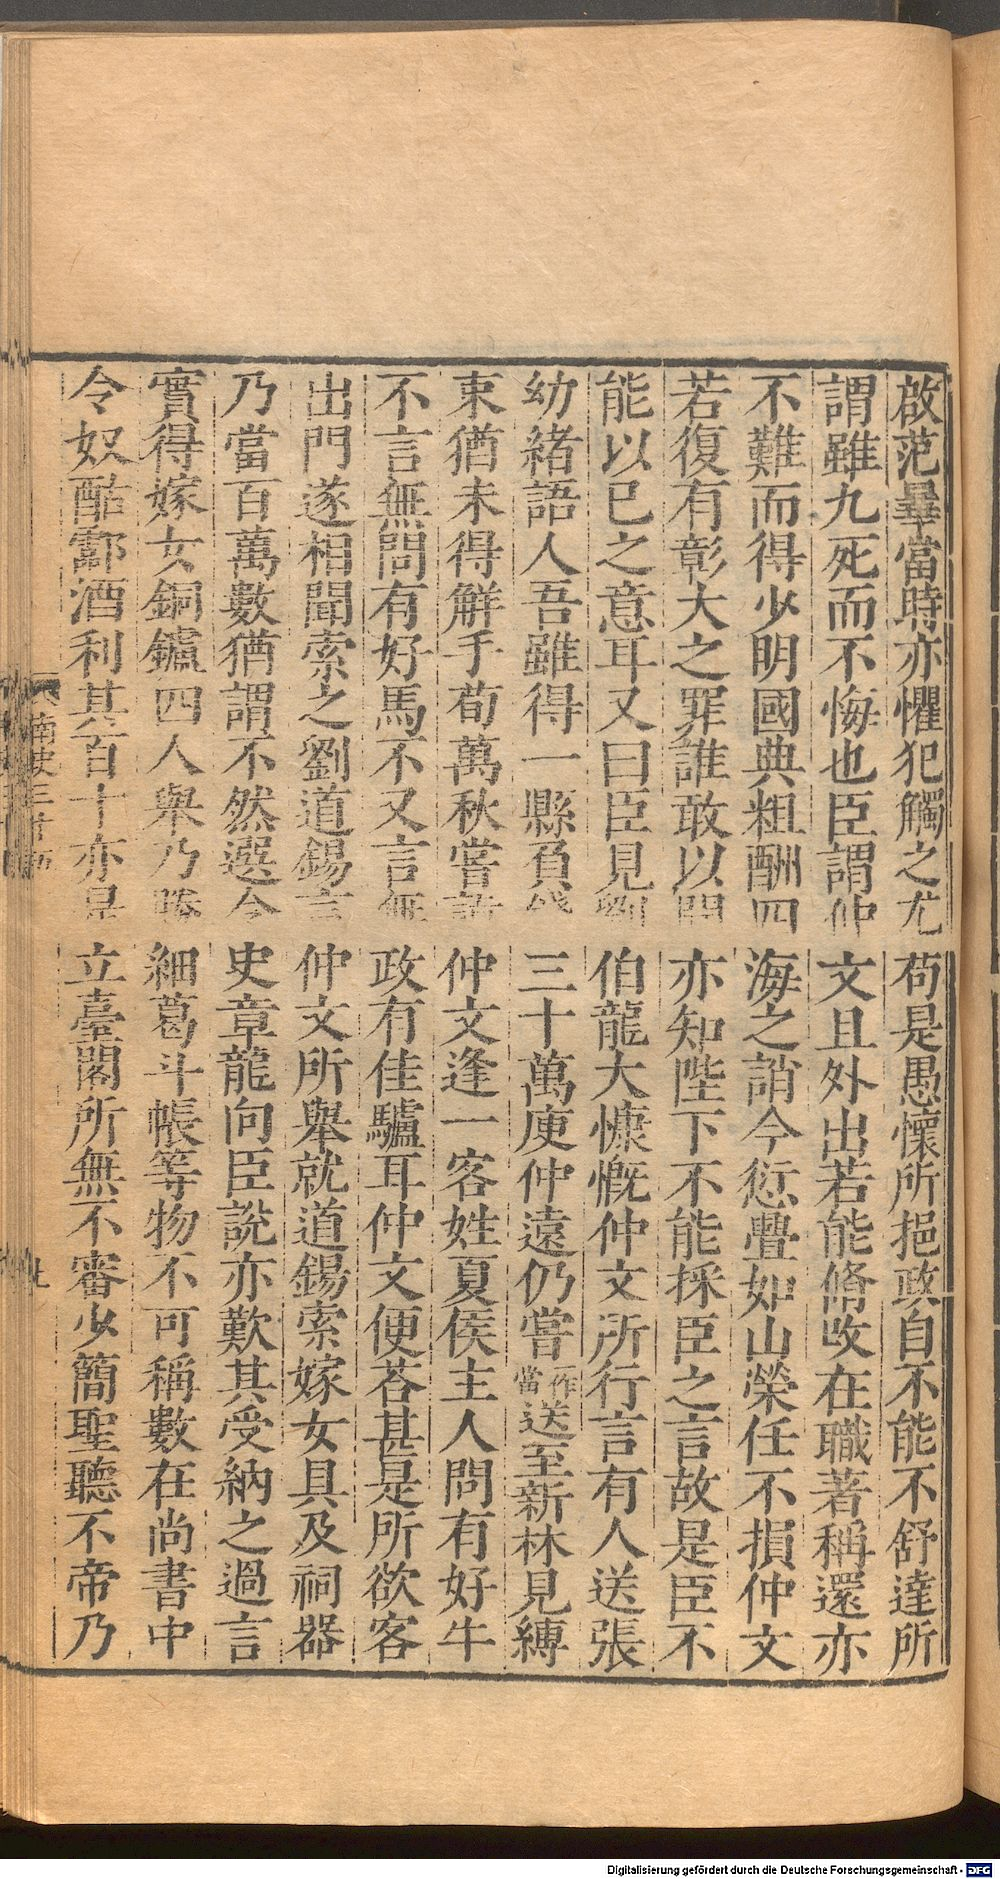 啟范曅當時亦懼犯觸之尤苟是愚懷所挹政自不能不舒達所
謂雖九死而不悔也臣謂仲文且外出若能脩改在職著稱還亦
不難而得少明國典粗酬四海之誚今愆舋如山榮任不損仲文
若復有彰大之罪誰敢以聞亦知陛下不能採臣之言故是臣不
能以已之意耳又曰臣見劉伯龍大慷慨仲文所行言有人送張
幼緒語人吾雖得一縣負錢三十萬庾仲遠仍嘗一作當送至新林見縛
束猶未得解手荀萬秋嘗詣仲文逢一客姓夏侯主人問有好牛
不言無問有好馬不又言無政有佳驢耳仲文便荅甚是所欲客
出門遂相聞索之劉道錫言仲文所舉就道錫索嫁女具及祠器
乃當百萬數猶謂不然選令史章龍向臣說亦歎其受納之過言
實得嫁女銅鑪四人舉乃勝細葛斗帳等物不可稱數在尚書中
令奴酤酃酒利其百十亦是立臺閣所無不審少簡聖聽不帝乃
南史三十五
七
Digitalisierung gefördert durch die Deutsche Forschungsgemeinschaft - DFG